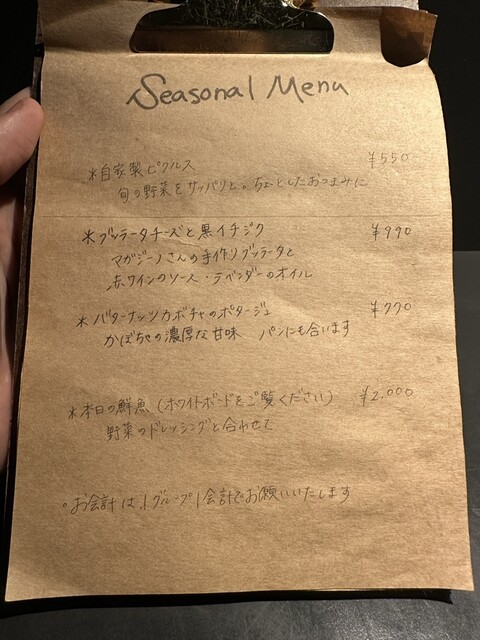 Seasonal Menu
*自家製ピクルス ¥550
旬の野菜をサッパリと。ちょっとしたおつまみに
*ブッラータチーズと黒イチジク ¥990
マガジーノさんの手作りブッラータと
赤ワインのソース・ラベンダーのオイル
*バターナッツカボチャのポタージュ ¥770
かぼちゃの濃厚な甘味 パンにも合います
*本日の鮮魚(ホワイトボードをご覧ください) ¥2,000
野菜のドレッシングと合わせて
○お会計は、1グループ1会計でお願いいたします